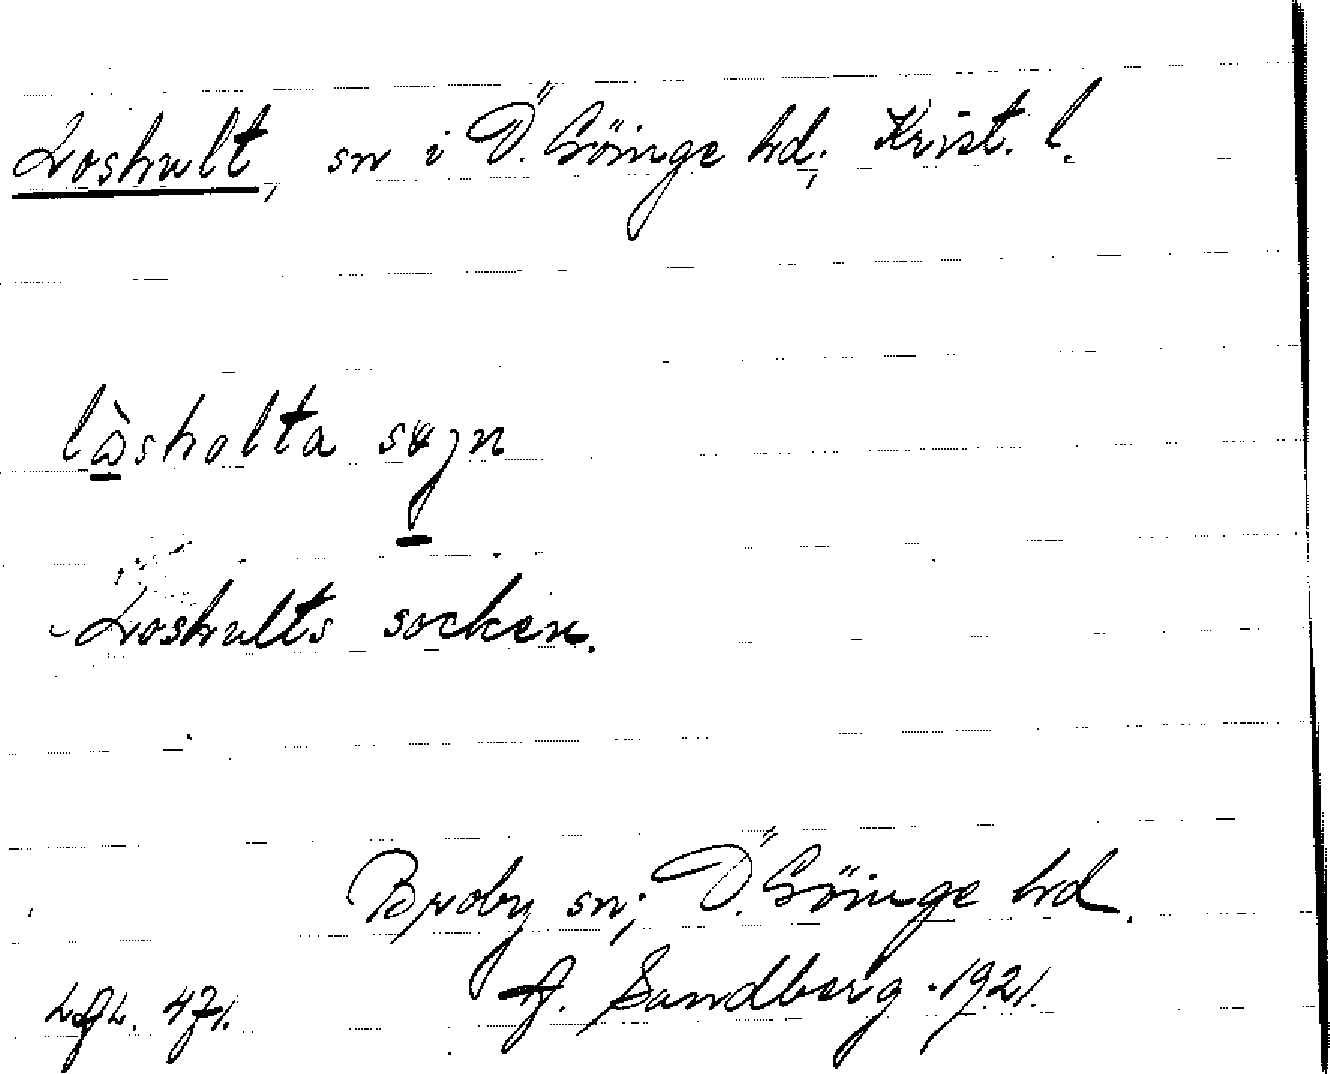 Loshult, sn i Ö. Göinge hd; Krist. l.
låsholta sogn
Loshults socken.
Broby sn; Ö. Göinge hd.
A. Sandberg. 1921.
471.